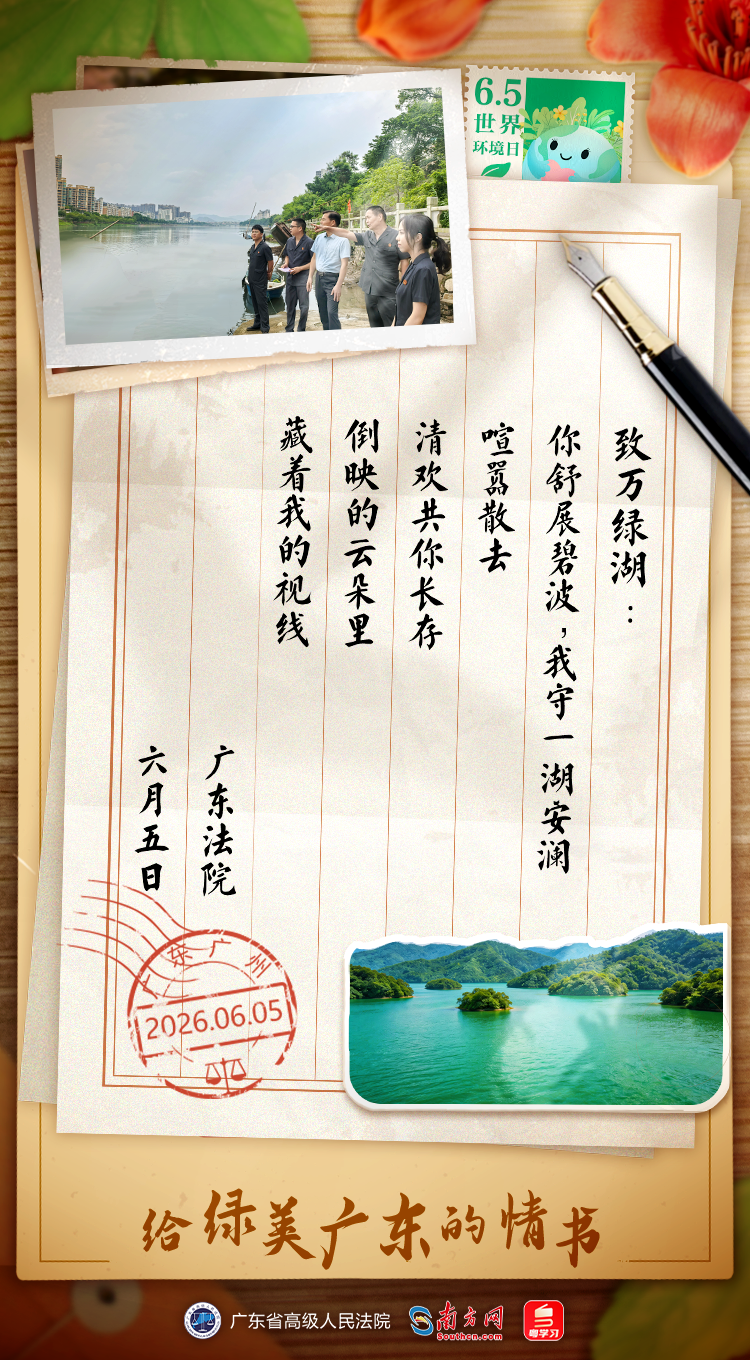 6.5
世界
环境日
致万绿湖：
你舒展碧波，我守一湖安澜
喧嚣散去
清欢共你长存
倒映的云朵里
藏着我的视线
广东法院
六月五日
广东广州
2026.06.05
给绿美广东的情书
广东省高级人民法院
南方网
Southcn.com
粤学习